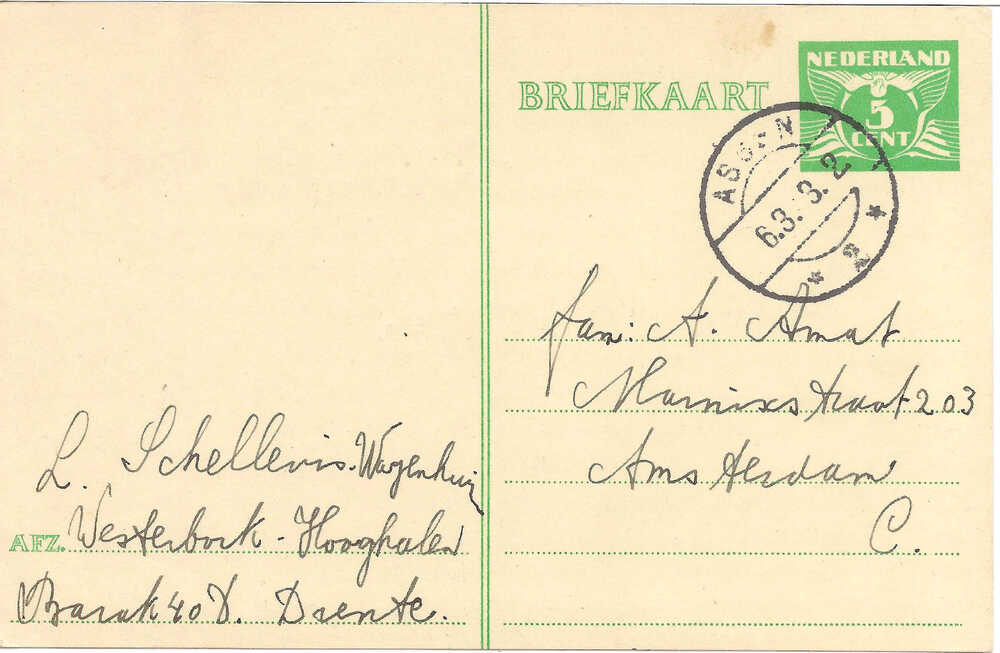 BRIEFKAART
NEDERLAND
5
CENT
ASSEN
6.3. 3. 2
* 2 *
fam: A. Amat
Marnixstraat 203
Amsterdam
C.
L. Schellevis-Wagenhuiz
AFZ. Westerbork - Hooghalen
Barak 40 D. Drente.